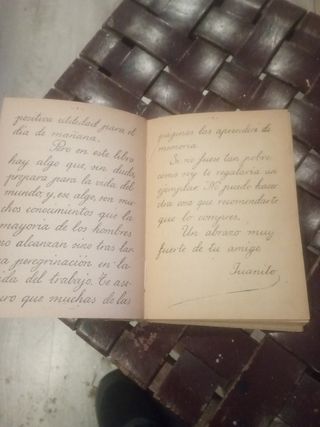 positiva utilidad para el
día de mañana.
Pero en este libro
hay algo que, sin duda,
prepara para la vida del
mundo; y, ese algo, son mu-
chos conocimientos que la
mayoría de los hombres
no alcanzan sino tras lar-
a peregrinación en la
da del trabajo. Te ase-
uro que muchas de las
páginas las aprendía de
memoria.
Si no fuese tan pobre
como soy te regalaría un
ejemplar. No puedo hacer
otra cosa que recomendarte
que lo compres.
Un abrazo muy
fuerte de tu amigo
Juanito